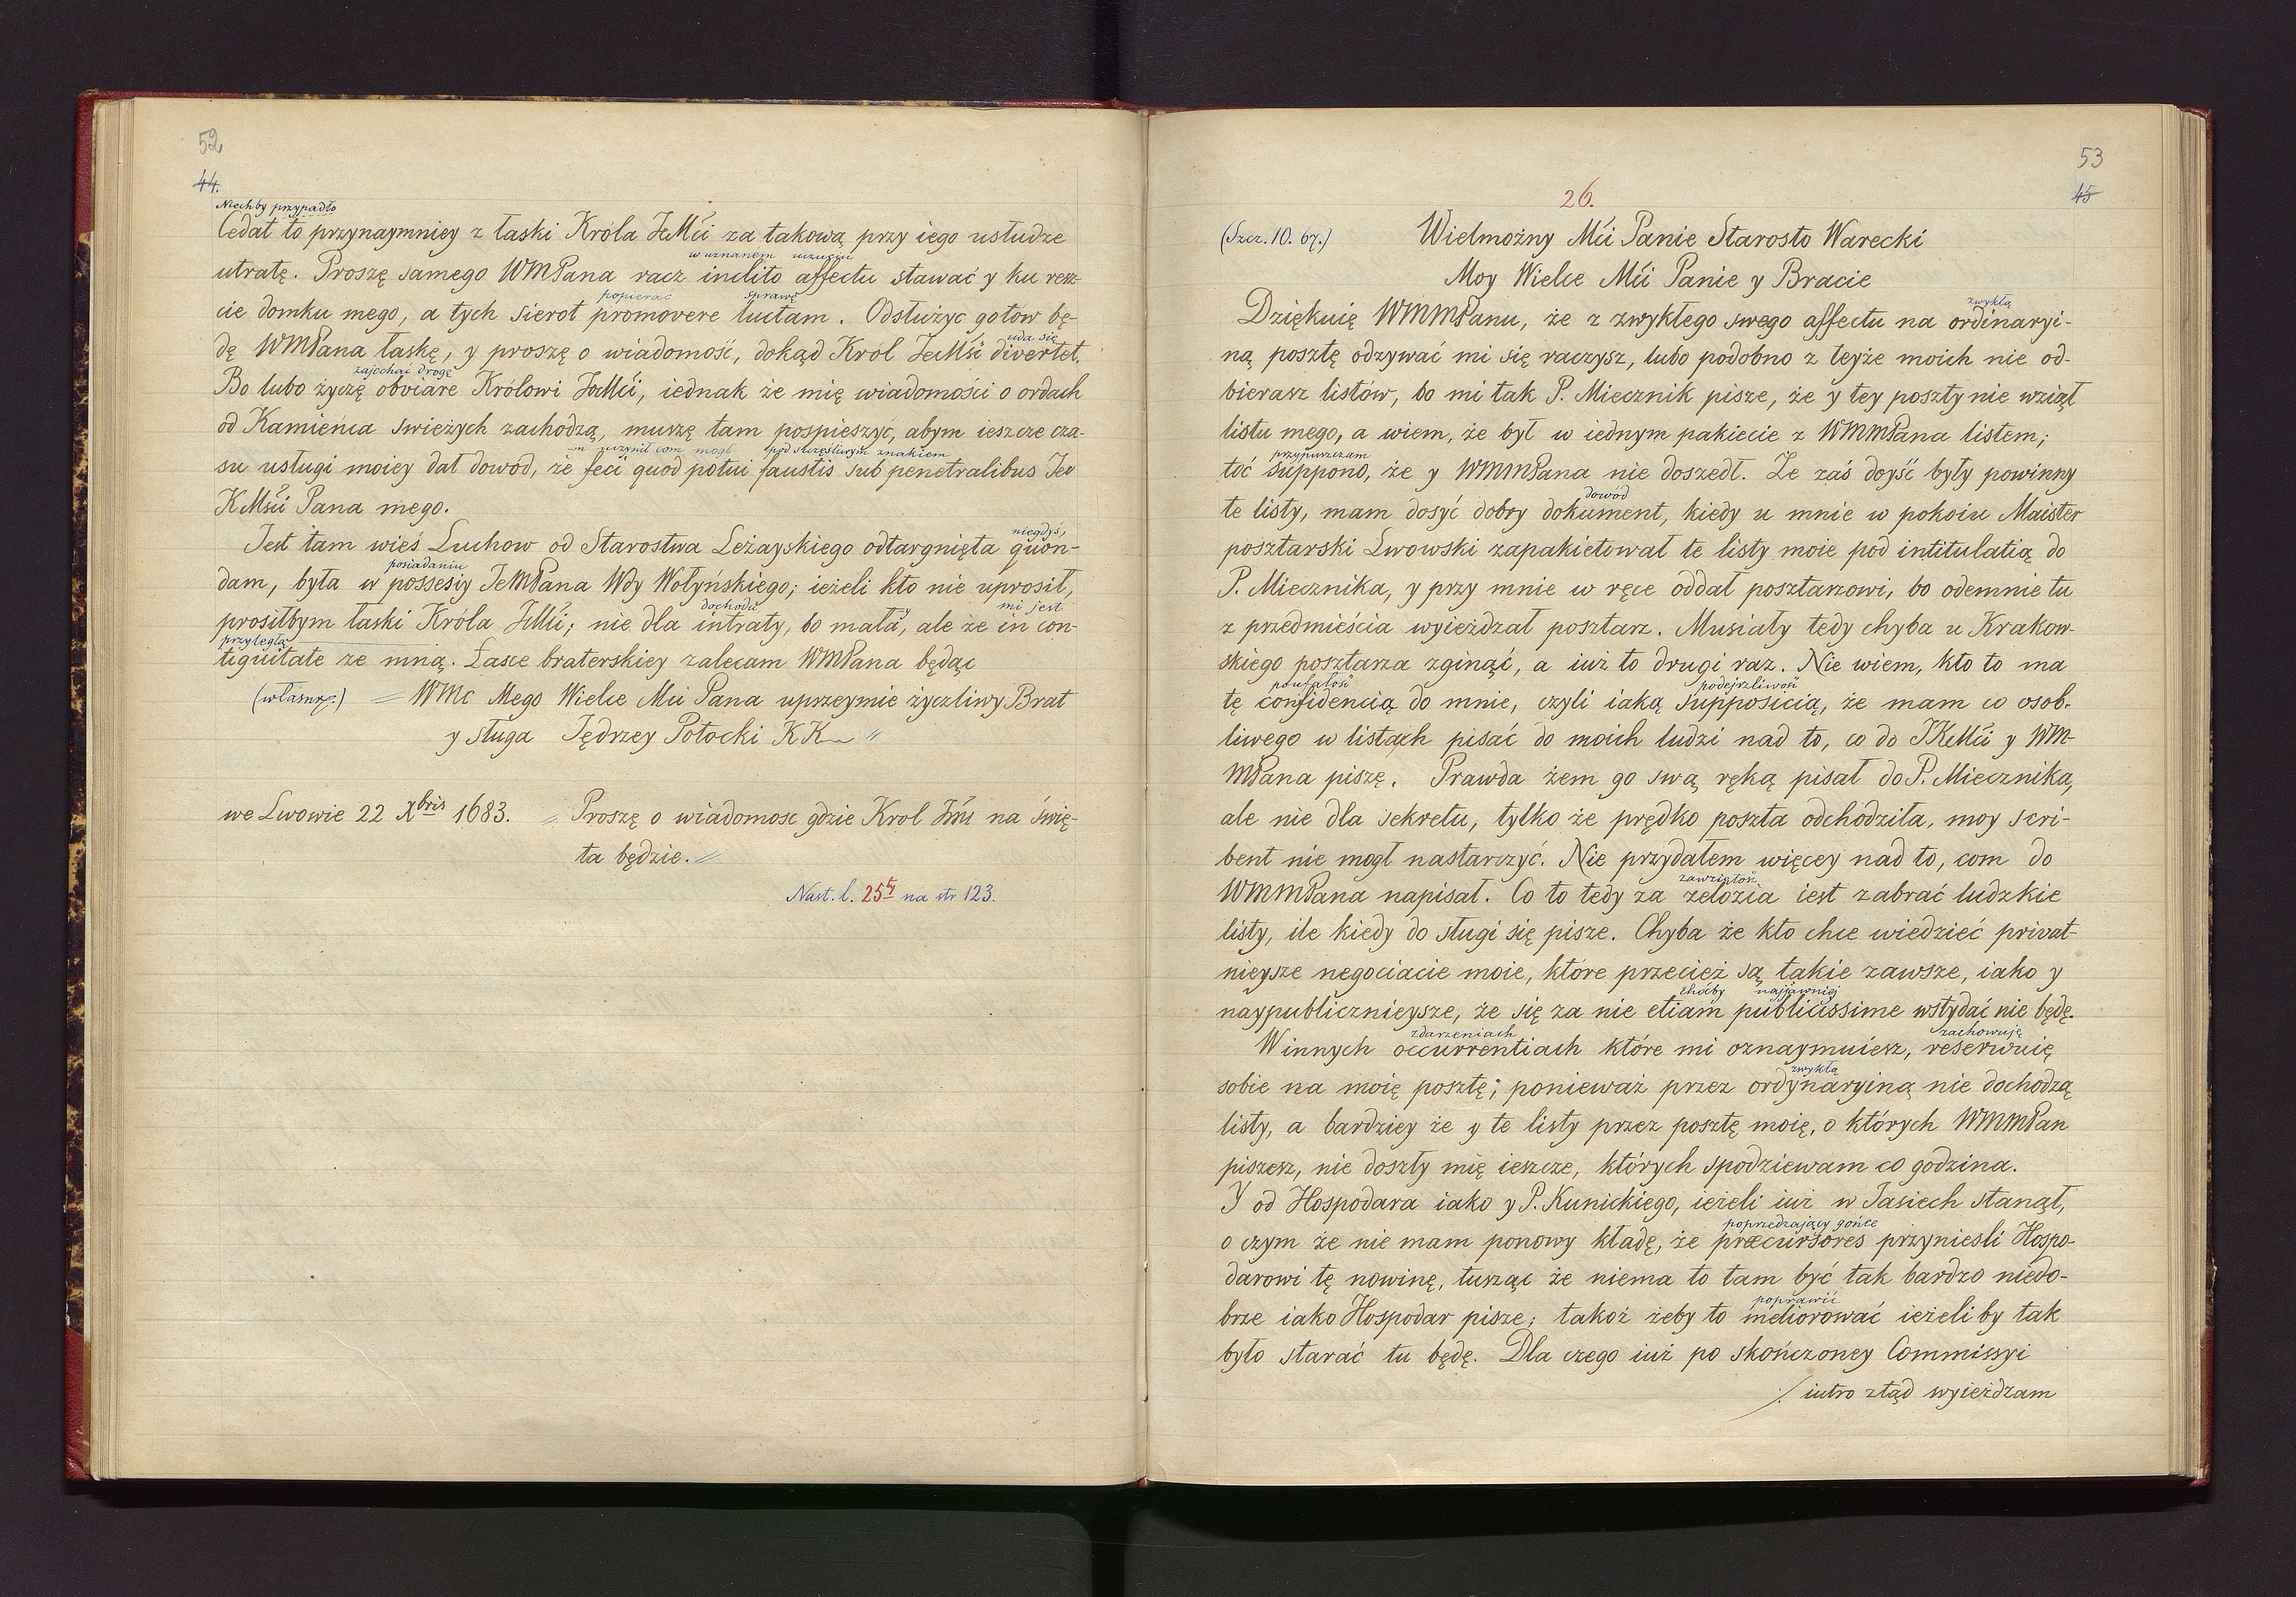 52
44.
Niechby przypadło
Cedat to przynaymniey z łaski Króla JeMći za takową przy iego usłudze
w uznanem uczuciu
utratę. Proszę samego WMPana racz inclito affectu stawać y ku resz-
popierać sprawę
cie domku mego, a tych sierot promovere luctam. Odsłużyc gotów bę-
uda się
dę WMPana łaskę, y proszę o wiadomość, dokąd Król JeMść divertet.
zajechać drogę
Bo lubo życzę obviare Królowi JeMći, iednak że mię wiadomości o ordach
od Kamieńca swieżych zachodzą, muszę tam pospieszyć, abym ieszcze cza-
m uczynił com mogł pod szczęśliwym znakiem
su usługi moiey dał dowód, że feci quod potui faustis sub penetralibus Jeo
KMści Pana mego.
niegdyś,
Jest tam wieś Luchow od Starostwa Leżayskiego odtargnięta quon-
posiadaniu
dam, była w possesiy JeMPana Wdy Wołyńskiego; ieżeli kto nie uprosił,
dochodu y mi jest
prosiłbym łaski Króla JMći; nie dla intraty, bo mała, ale że in con-
przyległą
tiguitate ze mną. Łasce braterskiey zalecam WMPana będąc
(własnoręcz.) = WMc Mego Wielce Mći Pana uprzeymie życzliwy Brat
y sługa Jędrzey Potocki KK "
we Lwowie 22 Xbris 1683. = Proszę o wiadomosc gdzie Krol Jmć na świę-
ta będzie. =
Nast. l. 25ty na str 123.
53
45
26.
(Szcz. 10. 67.) Wielmożny Mći Panie Starosto Warecki
Moy Wielce Mći Panie y Bracie
zwykłą
Dziękuię WMMPanu, że z zwykłego swego affectu na ordinaryi-
ną posztę odzywać mi się raczysz, lubo podobno z teyże moich nie od-
bierasz listów, bo mi tak P. Miecznik pisze, że y tey poszty nie wziął
listu mego, a wiem, że był w iednym pakiecie z WMMPana listem;
przypuszczam
toć suppono, że y WMMPana nie doszedł. Że zaś doyść były powinny
dowód
te listy, mam dosyć dobry dokument, kiedy u mnie w pokoiu Maister
posztarski Lwowski zapakietował te listy moie pod intitulatią do
P. Miecznika, y przy mnie w ręce oddał posztarzowi, bo odemnie tu
z przedmieścia wyieżdzał posztarz. Musiały tedy chyba u Krakow-
skiego posztarza zginąć, a iuż to drugi raz. Nie wiem, kto to ma
poufałość podejrzliwość
tę confidencią do mnie, czyli iaką supposicią, że mam co osob-
liwego w listach pisać do moich ludzi nad to, co do JKMći y WM-
MPana piszę. Prawda żem go swą ręką pisał do P. Miecznika,
ale nie dla sekretu, tylko że prędko poszta odchodziła, moy scri-
bent nie mogł nastarczyć. Nie przydałem więcey nad to, com do
zawziętość
WMMPana napisał. Co to tedy za zelozia iest zabrać ludzkie
listy, ile kiedy do sługi się pisze. Chyba że kto chce wiedzieć privat-
nieysze negociacie moie, które przecież są takie zawsze, iako y
choćby najjawniej
naypublicznieysze, że się za nie etiam publicissime wstydać nie będę.
zdarzeniach zachowuję
W innych occurrentiach które mi oznaymuiesz, reserwuię
zwykłą
sobie na moię posztę; ponieważ przez ordynaryiną nie dochodzą
listy, a bardziey że y te listy przez posztę moię, o których WMMPan
piszesz, nie doszły mię ieszcze, których spodziewam co godzina.
Y od Hospodara iako y P. Kunickiego, ieżeli iuż w Jasiech stanął,
poprzedzający gońce
o czym że nie mam ponowy kładę, że præcursores przyniesli Hospo-
darowi tę nowinę, tusząc że niema to tam być tak bardzo niedo-
poprawić
brze iako Hospodar pisze; takoż żeby to meliorować ieżeli by tak
było starać tu będę. Dla czego iuż po skończoney Commissyi
/. iutro ztąd wyieżdzam